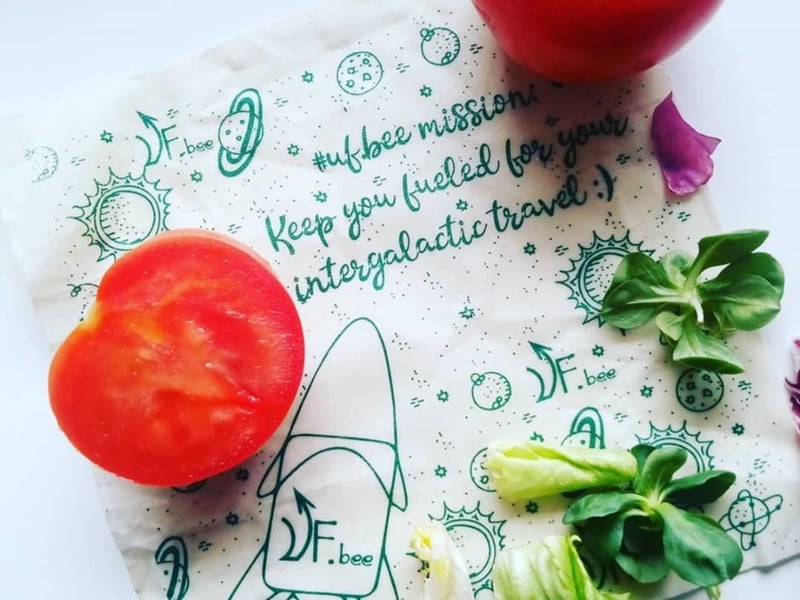 UF.bee
#uf.bee mission:
Keep you fueled for your
intergalactic travel :)
UF.bee
UF.bee